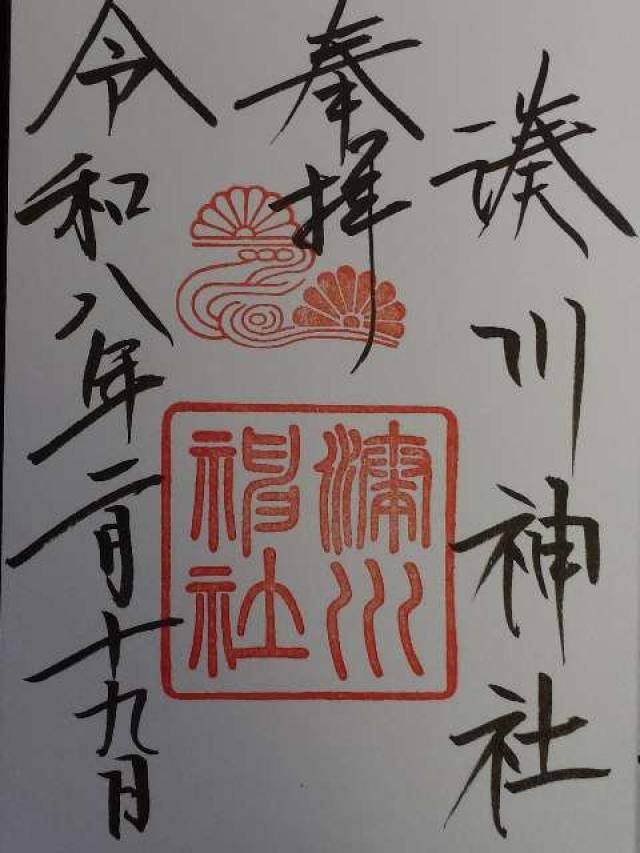 湊川神社
奉拝
湊川神社
令和八年二月十九日